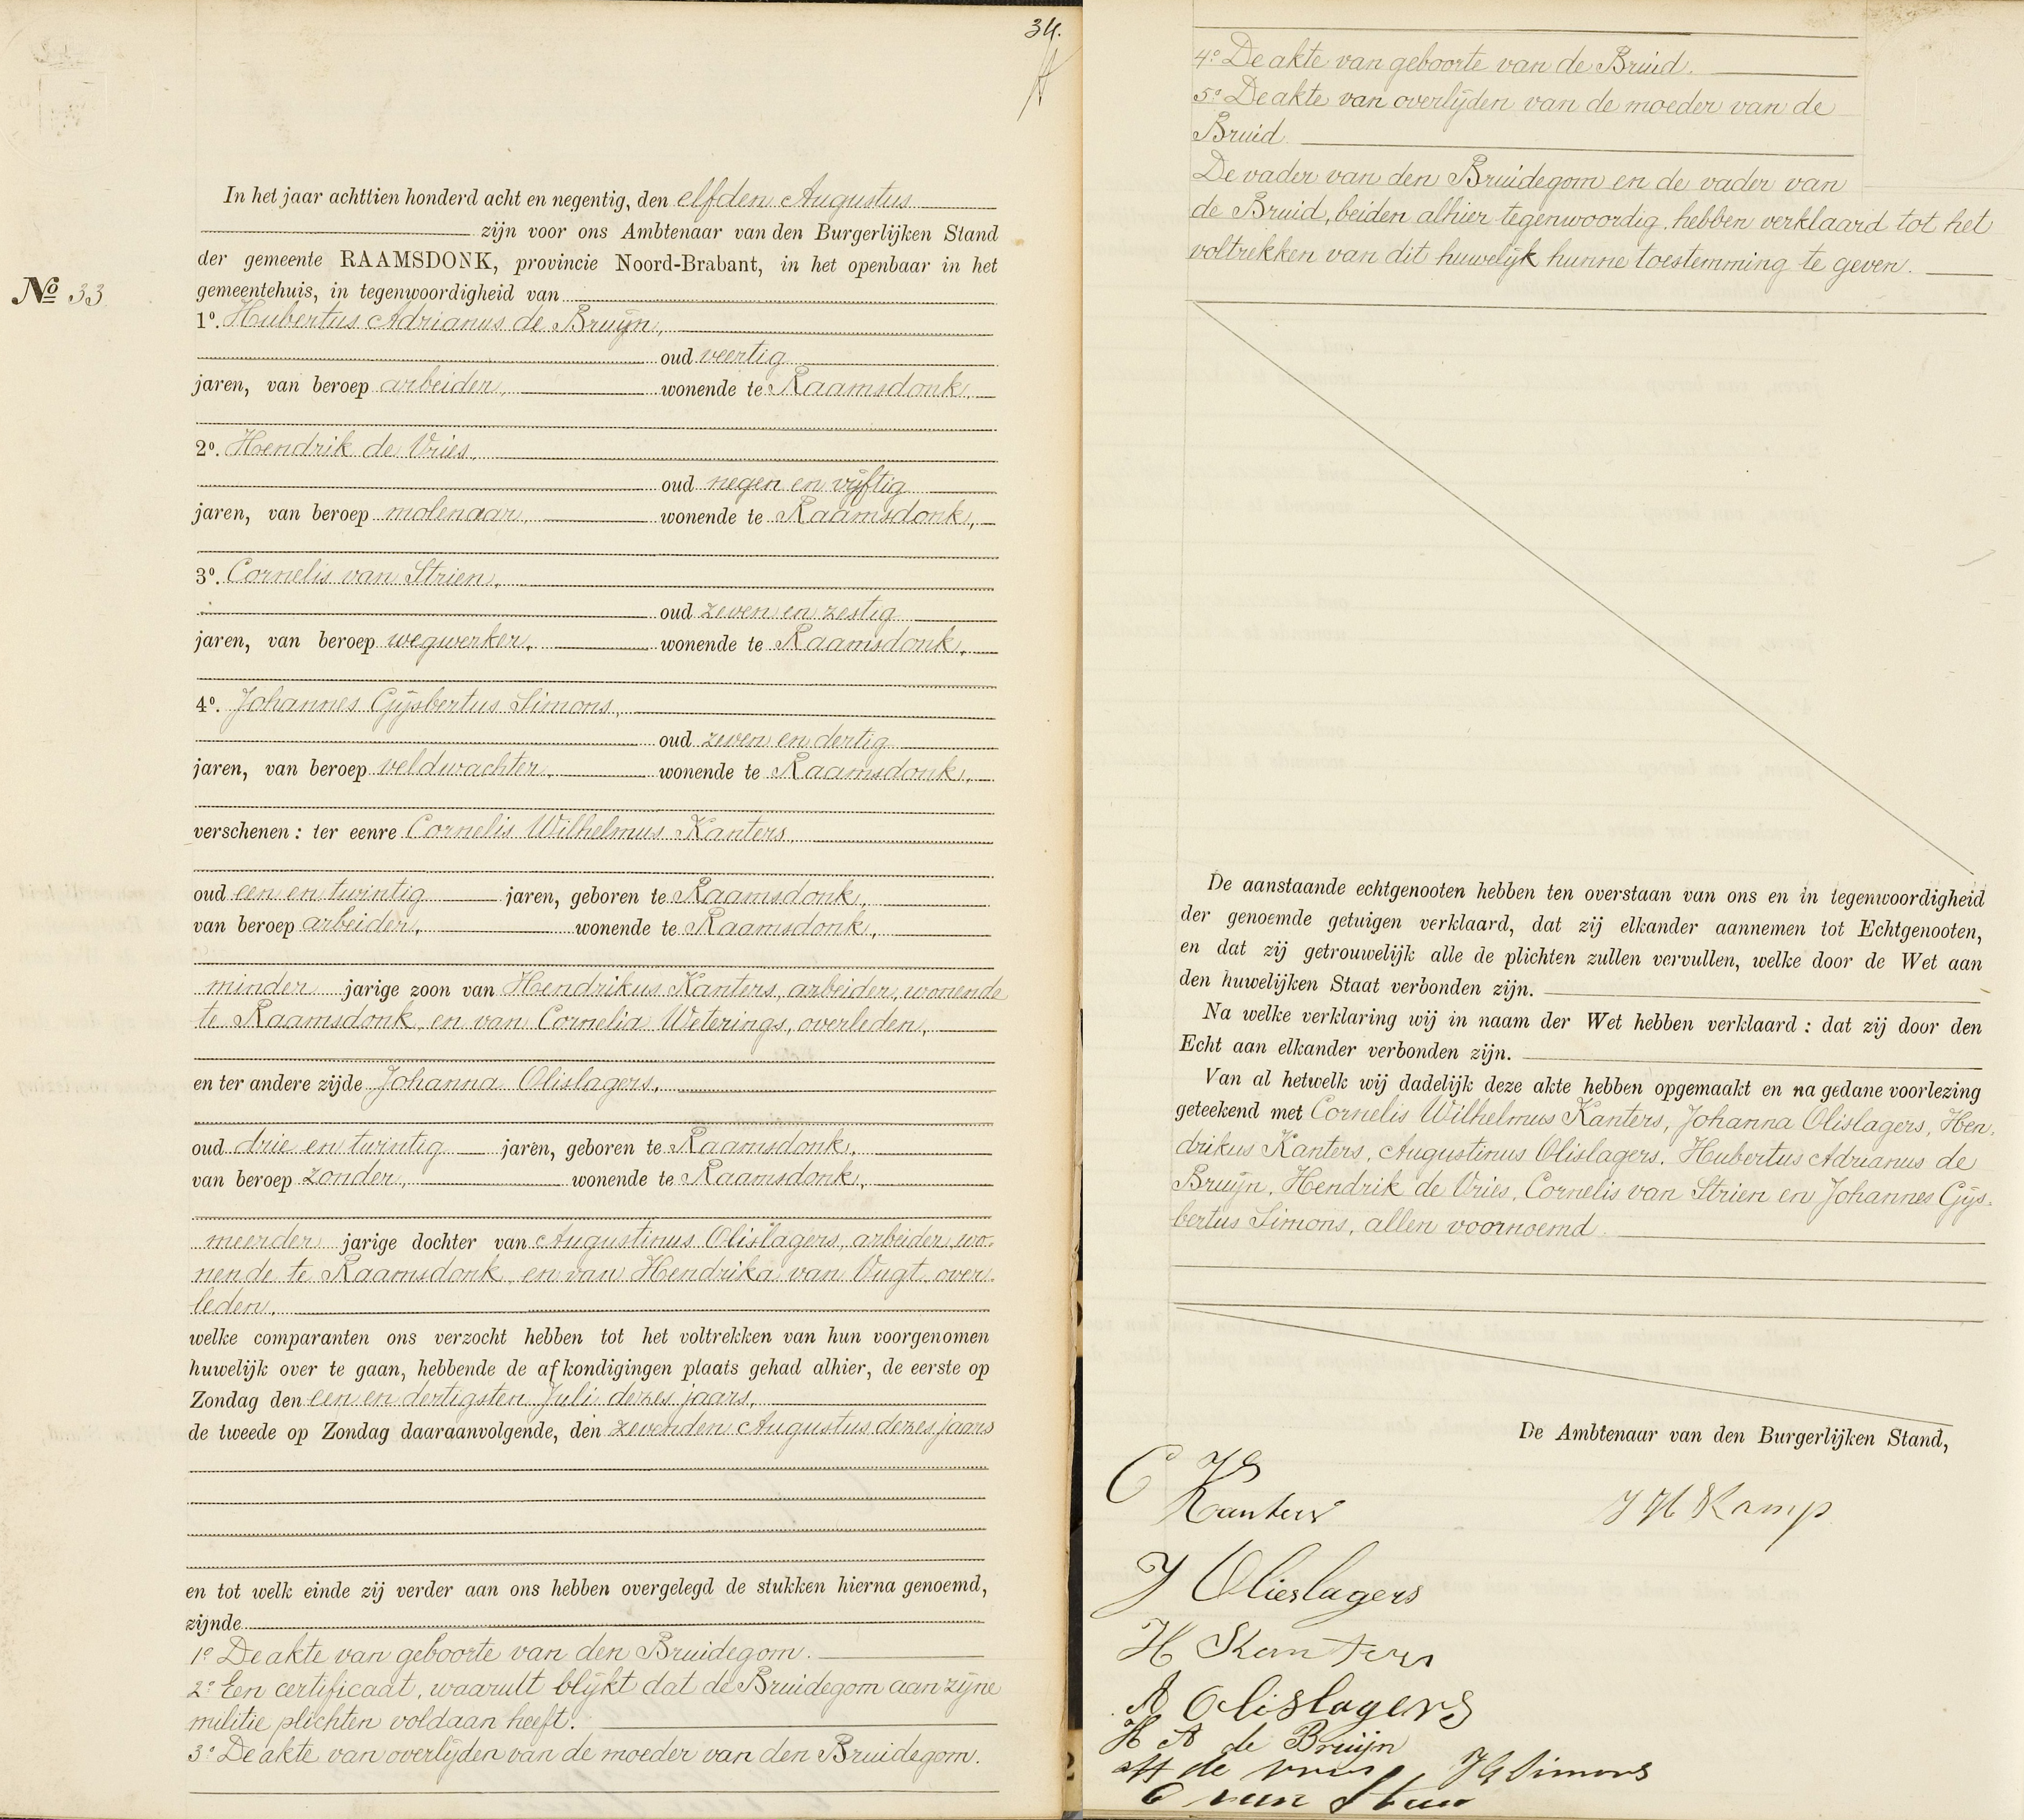 34.
In het jaar achttien honderd acht en negentig, den elfden Augustus
zijn voor ons Ambtenaar van den Burgerlijken Stand
der gemeente RAAMSDONK, provincie Noord-Brabant, in het openbaar in het
gemeentehuis, in tegenwoordigheid van
No 33.
1o. Hubertus Adrianus de Bruijn,
oud veertig
jaren, van beroep arbeider, wonende te Raamsdonk,
2o. Hendrik de Vries,
oud negen en vijftig
jaren, van beroep molenaar, wonende te Raamsdonk,
3o. Cornelis van Strien,
oud zeven en zestig
jaren, van beroep wegwerker, wonende te Raamsdonk,
4o. Johannes Gijsbertus Simons,
oud zeven en dertig
jaren, van beroep veldwachter, wonende te Raamsdonk,
verschenen: ter eenre Cornelis Wilhelmus Kanters,
oud een en twintig jaren, geboren te Raamsdonk,
van beroep arbeider, wonende te Raamsdonk,
minder jarige zoon van Hendrikus Kanters, arbeider, wonende
te Raamsdonk en van Cornelia Weterings, overleden,
en ter andere zijde Johanna Olislagers,
oud drie en twintig jaren, geboren te Raamsdonk,
van beroep zonder, wonende te Raamsdonk,
meerder jarige dochter van Augustinus Olislagers, arbeider, wo-
nende te Raamsdonk en van Hendrika van Vugt, over-
leden,
welke comparanten ons verzocht hebben tot het voltrekken van hun voorgenomen
huwelijk over te gaan, hebbende de afkondigingen plaats gehad alhier, de eerste op
Zondag den een en dertigsten Juli dezes jaars,
de tweede op Zondag daaraanvolgende, den zevenden Augustus dezes jaars
en tot welk einde zij verder aan ons hebben overgelegd de stukken hierna genoemd,
zijnde
1o De akte van geboorte van den Bruidegom.
2o Een certificaat, waaruit blijkt dat de Bruidegom aan zijne
militie plichten voldaan heeft.
3o De akte van overlijden van de moeder van den Bruidegom.
4o De akte van geboorte van de Bruid.
5o De akte van overlijden van de moeder van de
Bruid.
De vader van den Bruidegom en de vader van
de Bruid, beiden alhier tegenwoordig, hebben verklaard tot het
voltrekken van dit huwelijk hunne toestemming te geven.
De aanstaande echtgenooten hebben ten overstaan van ons en in tegenwoordigheid
der genoemde getuigen verklaard, dat zij elkander aannemen tot Echtgenooten,
en dat zij getrouwelijk alle de plichten zullen vervullen, welke door de Wet aan
den huwelijken Staat verbonden zijn.
Na welke verklaring wij in naam der Wet hebben verklaard: dat zij door den
Echt aan elkander verbonden zijn.
Van al hetwelk wij dadelijk deze akte hebben opgemaakt en na gedane voorlezing
geteekend met Cornelis Wilhelmus Kanters, Johanna Olislagers, Hen-
drikus Kanters, Augustinus Olislagers, Hubertus Adrianus de
Bruijn, Hendrik de Vries, Cornelis van Strien en Johannes Gijs-
bertus Simons, allen voornoemd
De Ambtenaar van den Burgerlijken Stand,
C W
Kanters
J H Kamp
J Olieslagers
H Kanters
A Olislagers
H A de Bruijn
H de Vries J G Simons
C van Strien